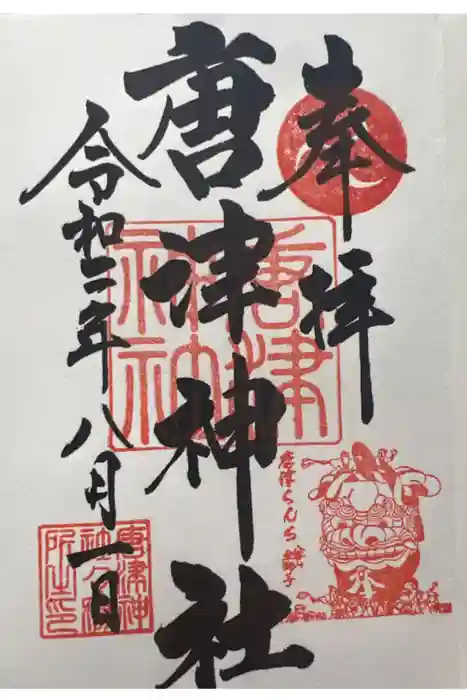 奉拝
唐津神社
令和二年八月一日
唐津
神社
唐津くんち
唐津神
社々務
所之印